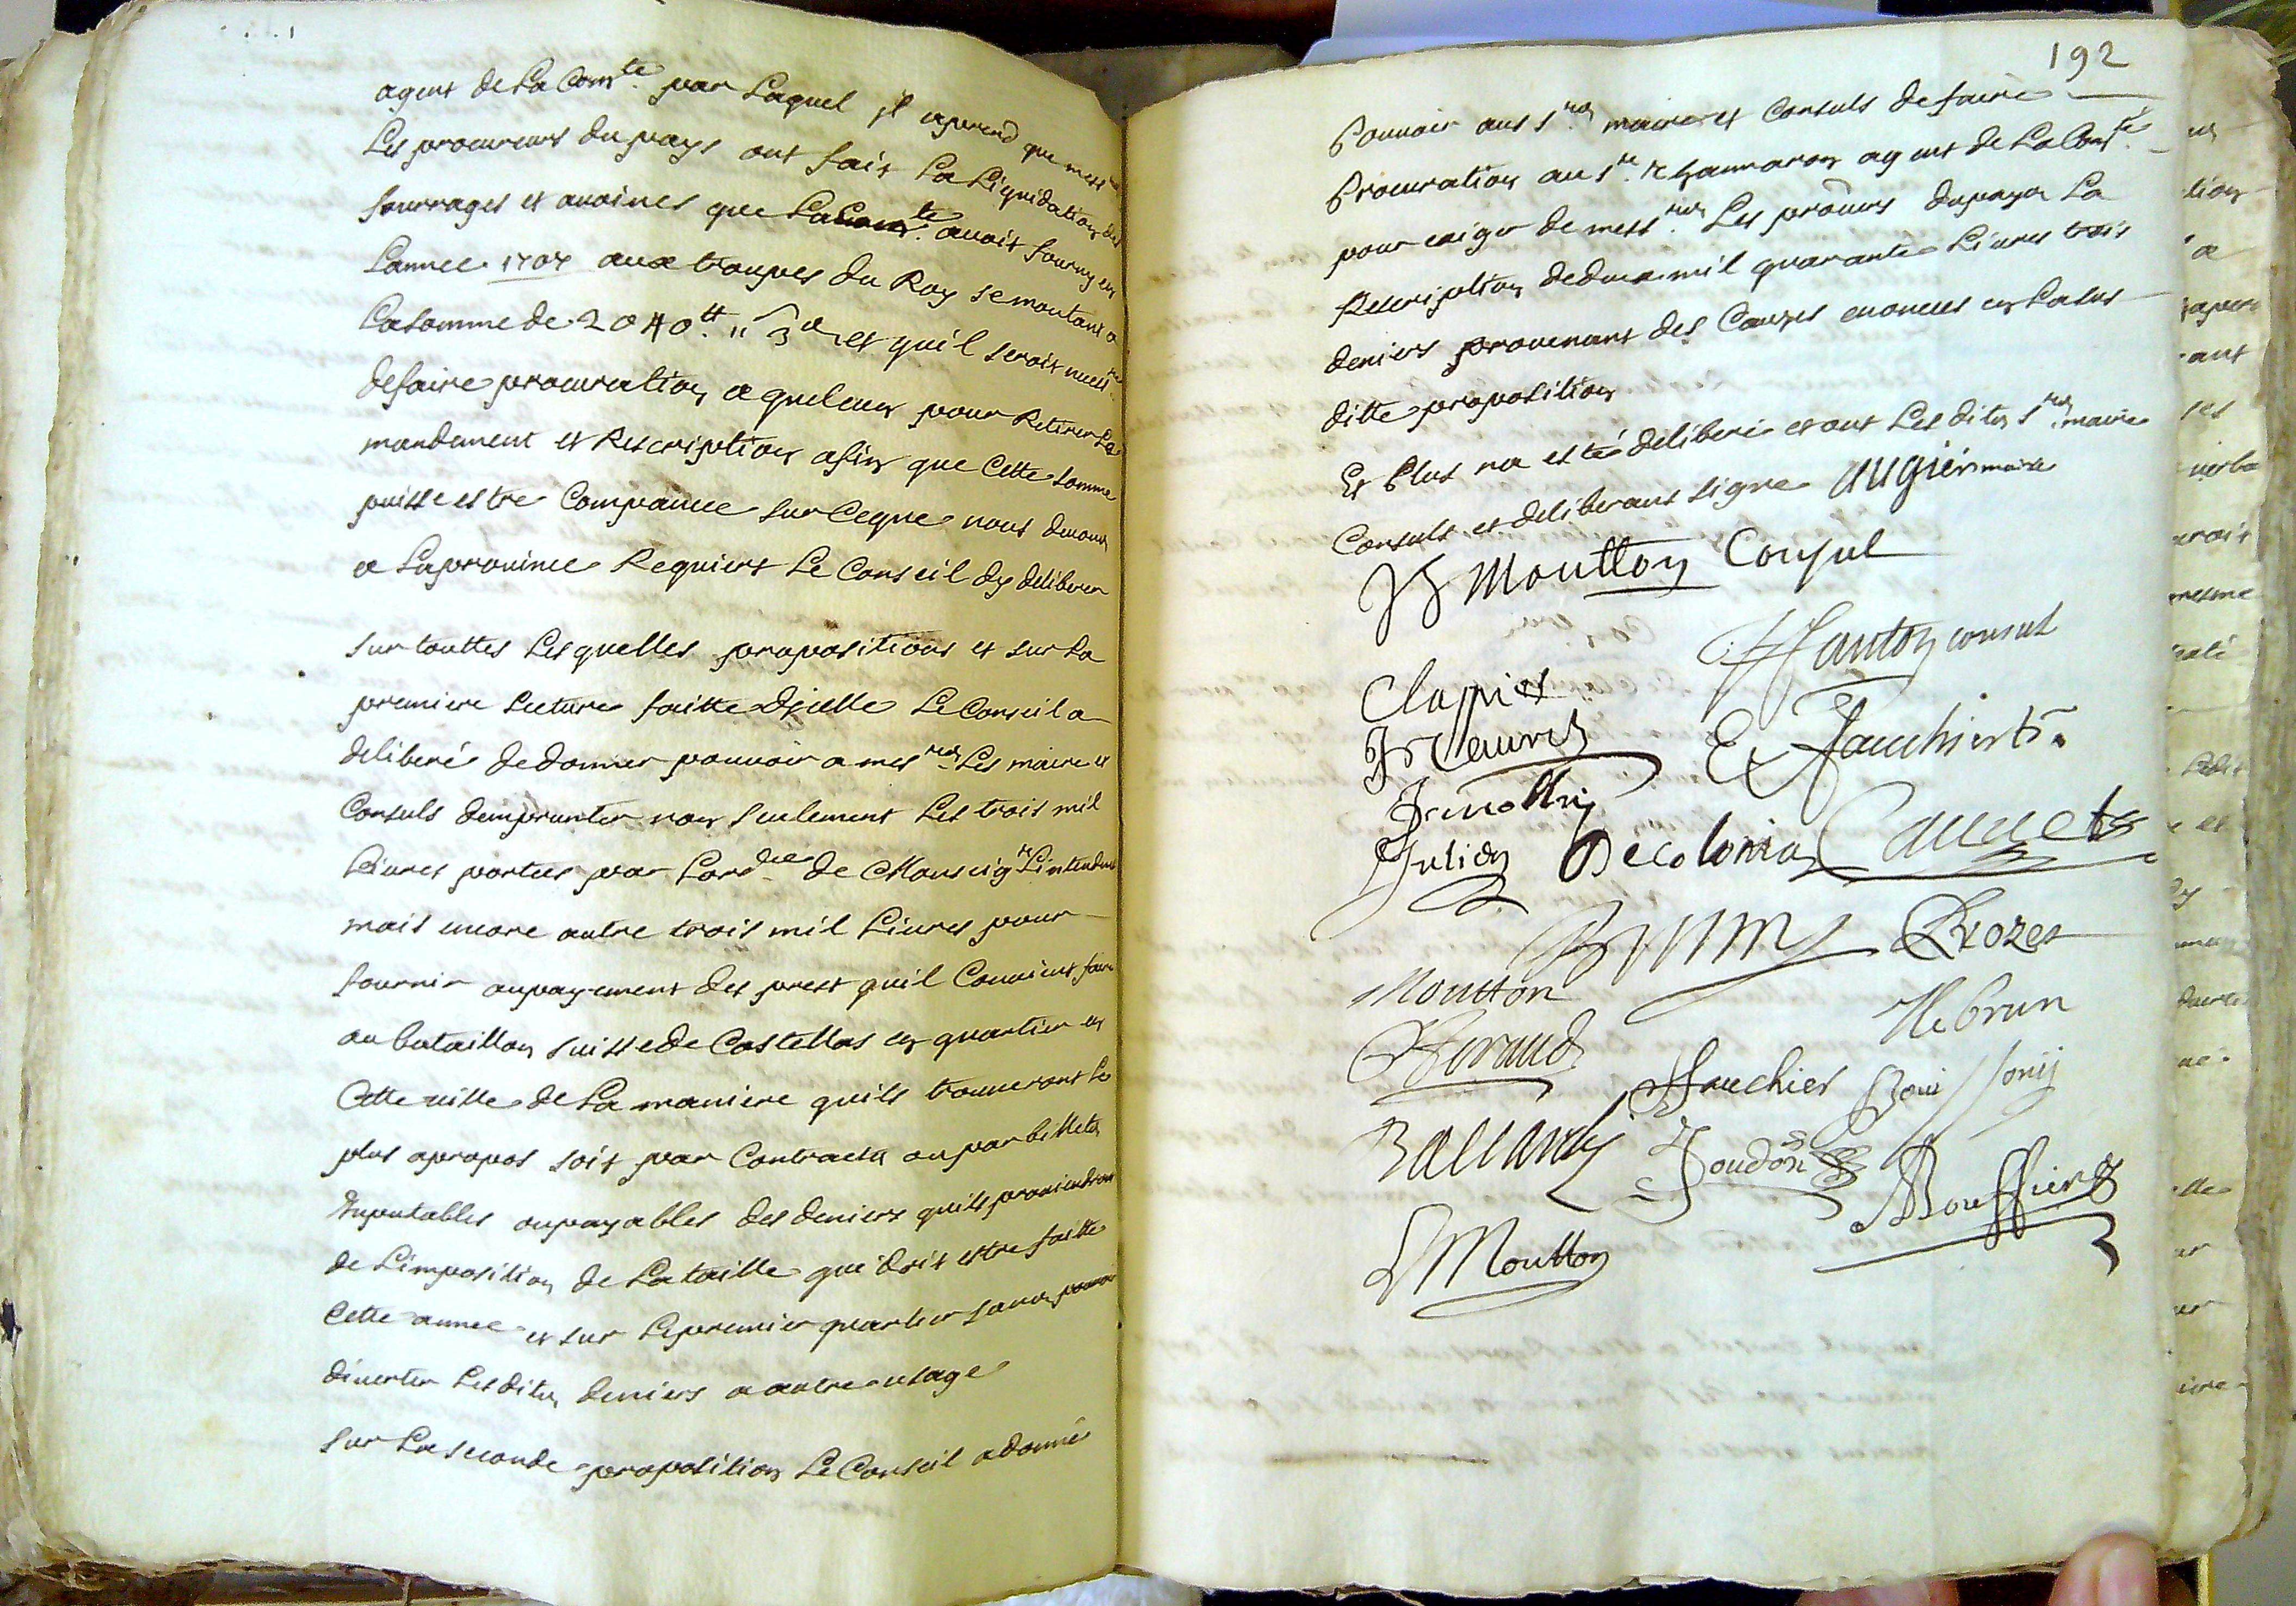 agent de La Com.te par Laquel jl aprend que mess.rs
Les procureurs du pays ont fait La Liquidation des
fourrages et avoines que La Com.te avoit fourny en
Lannee 1707 aux troupes du Roy se montant a
La somme de 2040.tt " 3 d et quil seroit necess.re
de faire procuration a quelcun pour Retirer Le
mandement et Rescription afin que Cette somme
puisse estre Compancee sur Ceque nous devons
a La province Requiert Le Conseil dy deliberer
sur touttes Lesquelles propositions et sur La
premiere Lecture faitte djcelle Le Conseil a
deliberé de donner pouvoir a mes.rs Les maire et
Consuls demprunter non seulement Les trois mil
Livres portees par Lord.ce de Monseig.r Lintendant
mais encore autre trois mil Livres pour
fournir au payement des prest quil Convient faire
au bataillon suisse de Castellas en quartier en
Cette ville de La maniere quils trouveront Le
plus apropos soit par Contracts ou par billets
Imputables ou payables des deniers quils proviendront
de Limposition de La taille qui doit estre faitte
Cette annee et sur Le premier quartier sans pouvoir
diverter Lesdits deniers a autre usage
sur La seconde proposition Le Conseil a donné
192
Pouvoir aus s.rs maire et Consuls de faire
Procuration au s.r agent de La Com.te
pour exiger de mess.rs Les procurs du pays La
Rescription de deux mil quarante Livres trois
deniers provenant des Causes enoncees en La sus
ditte proposition
Et Plus na esté deliberé et ont Les dits s.rs maire
Consuls et deliberans signe Augier maire
JB Moutton Consul
H anton consul
Clapier
E Fauchier
Julien Decolonia Cauvet
Brun Drozes
Moutton
H Lebrun
Giraud
Fauchier Bouissony
Ballardy Joudon
Bouffier
L Moutton